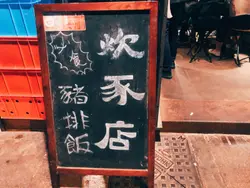 炊豕店
豬排飯